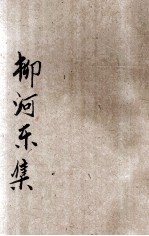 柳河东集